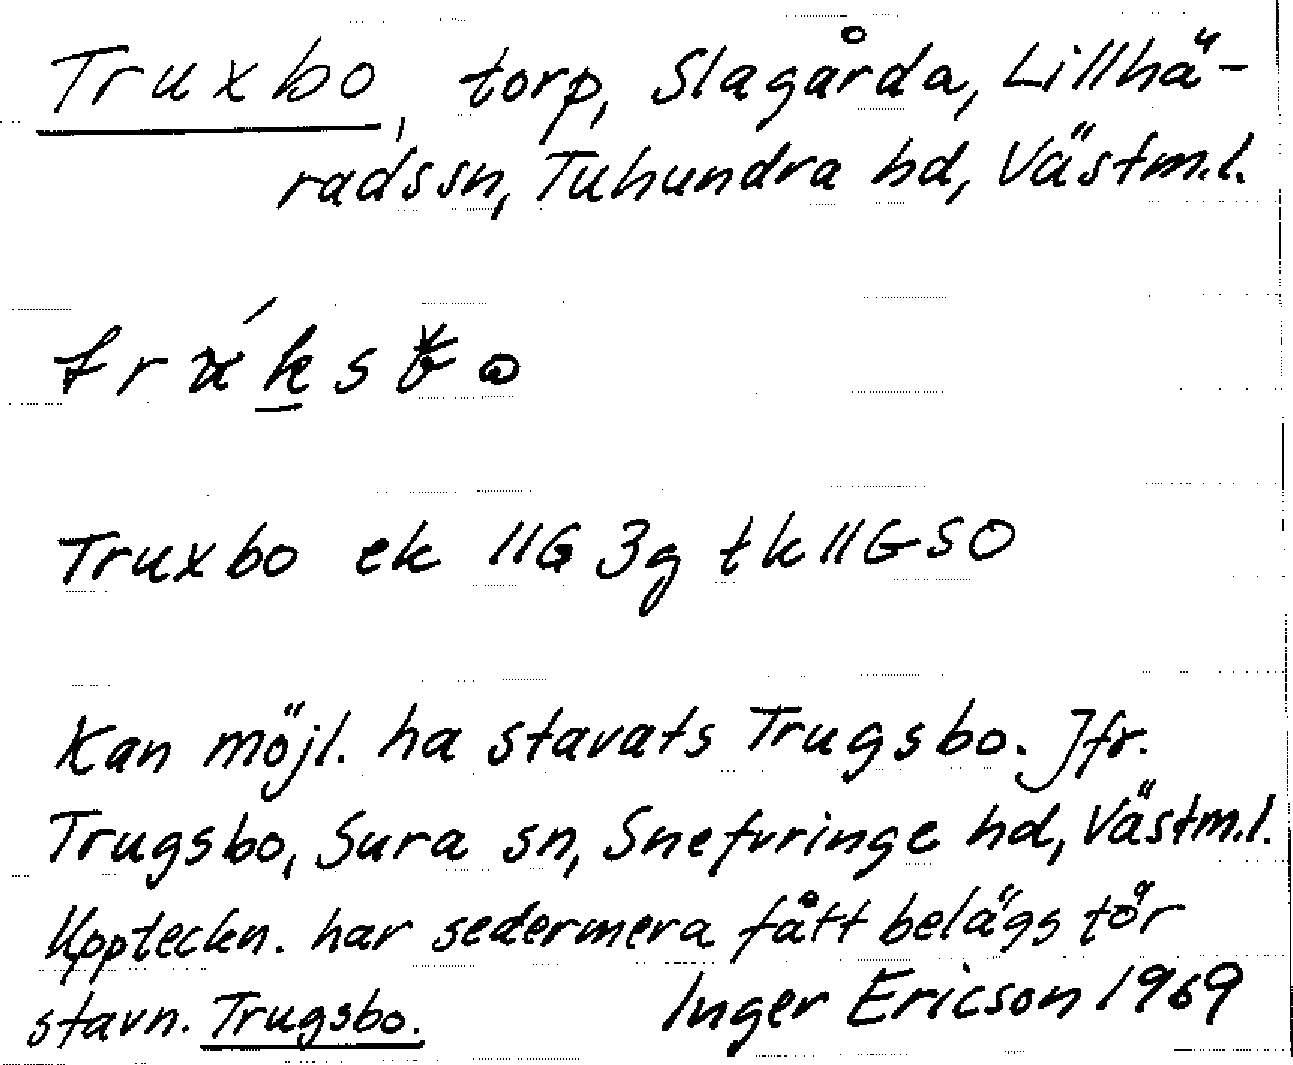 Truxbo, torp, Slagårda, Lillhä-
radssn, Tuhundra hd, Västm.l.
Truxbo ek 11G 3g tk 11G SO
Kan möjl. ha stavats Trugsbo. Jfr.
Trugsbo, Sura sn, Snefvringe hd, Västm.l.
Uppteckn. har sedermera fått belägg för
stavn. Trugsbo. Inger Ericson 1969